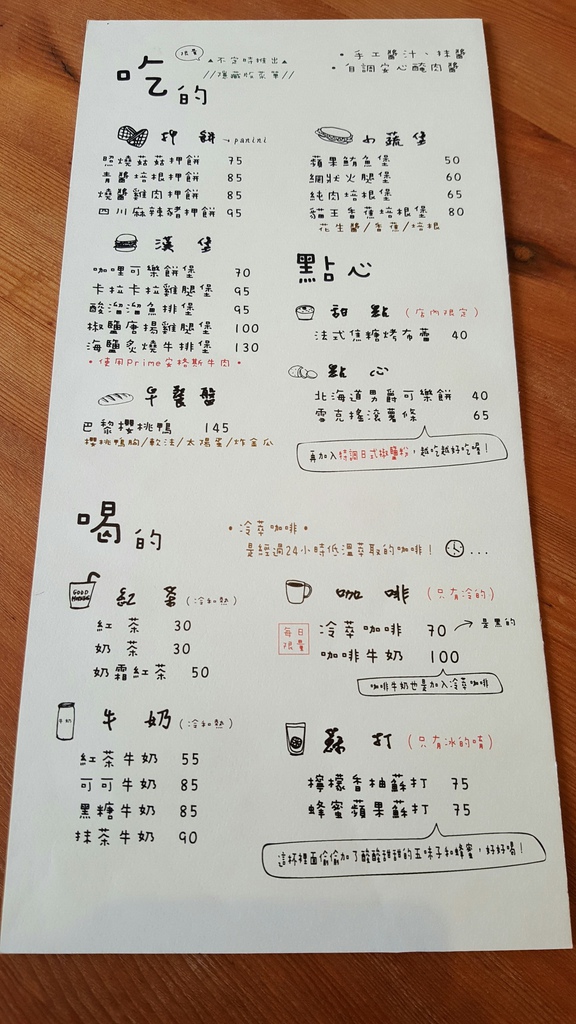 吃的
限量
▲不定時推出▲
//隱藏版菜單//
•手工醬汁、抹醬
•自調安心醃肉醬
押餅→panini
照燒菇菇押餅 75
青醬培根押餅 85
燒醬雞肉押餅 85
四川麻辣豬押餅 95
小蔬堡
蘋果鮪魚堡 50
網狀火腿堡 60
純肉培根堡 65
貓王香蕉培根堡 80
花生醬/香蕉/培根
漢堡
咖哩可樂餅堡 70
卡拉卡拉雞腿堡 95
酸溜溜魚排堡 95
椒鹽唐揚雞腿堡 100
海鹽炙燒牛排堡 130
•使用Prime安格斯牛肉•
早餐盤
巴黎櫻桃鴨 145
櫻桃鴨胸/軟法/太陽蛋/炸金瓜
點心
甜點(店內限定)
法式焦糖烤布蕾 40
點心
北海道男爵可樂餅 40
雪克搖滾薯條 65
再加入特調日式椒鹽粉,越吃越好吃喔!
喝的
•冷萃咖啡•
是經過24小時低溫萃取的咖啡!
...
GOOD MORNING
紅茶(冷和熱)
紅茶 30
奶茶 30
奶霜紅茶 50
咖啡(只有冷的)
每日限量
冷萃咖啡 70 →是黑的
咖啡牛奶 100
咖啡牛奶也是加入冷萃咖啡
牛奶
牛奶(冷和熱)
紅茶牛奶 55
可可牛奶 85
黑糖牛奶 85
抹茶牛奶 90
蘇打(只有冰的唷)
檸檬香柚蘇打 75
蜂蜜蘋果蘇打 75
這杯裡面偷偷加了酸酸甜甜的五味子和蜂蜜,好好喝!